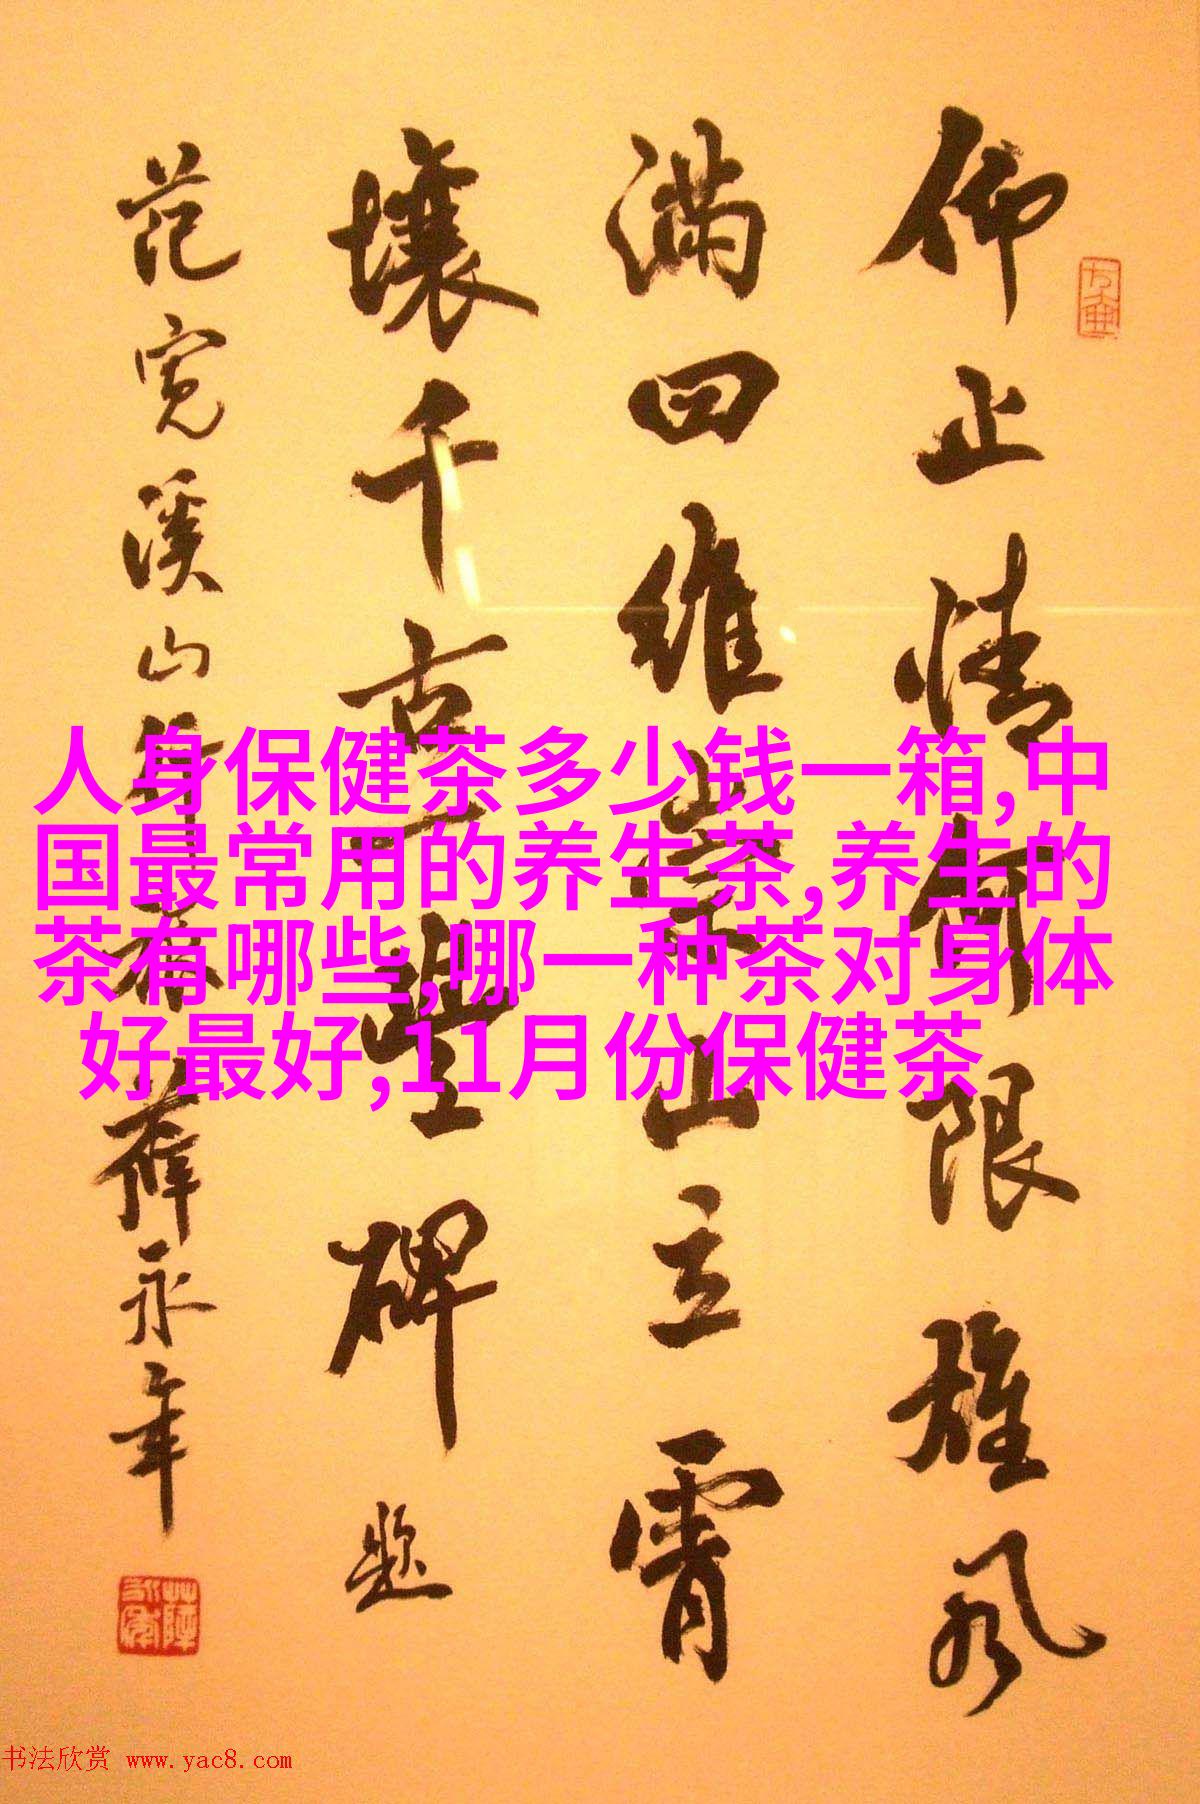 仰止情何限雄风
满四维崇山立霄
壤千古一豐碑题
范宽溪山行旅 薛永年
人身保健茶多少钱一箱,中
国最常用的养生茶,养生的
茶有哪些,哪一种茶对身体
好最好,11月份保健茶
书法欣赏 www.yac8.com